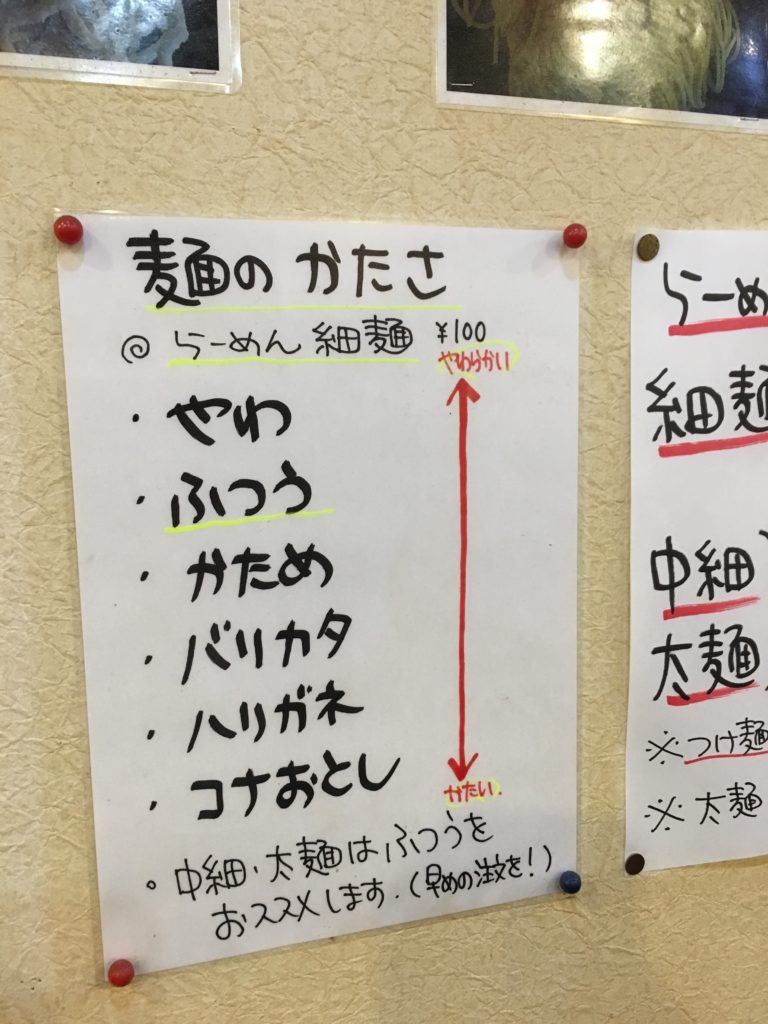 麺のかたさ
◎ らーめん 細麺 ¥100
やわらかい
・やわ
・ふつう
・かため
・バリカタ
・ハリガネ
・コナおとし
かたい.
。中細・太麺はふつうを
おススメします.(早めの注文を!)
らーめ
細麺
中細
太麺
※つけ麺
※太麺